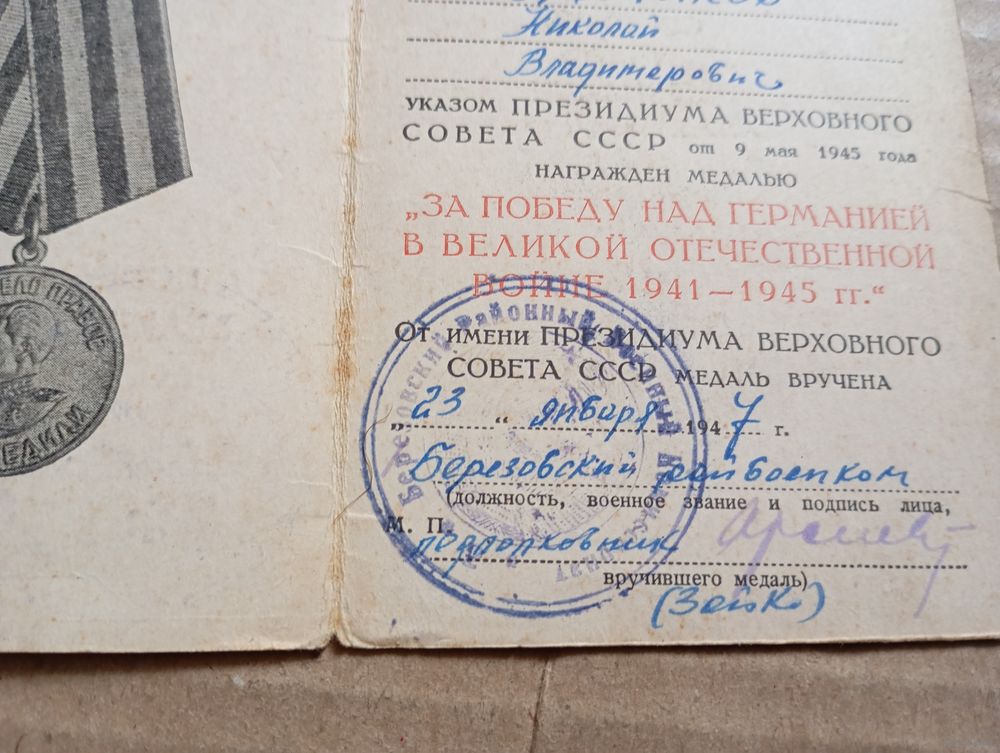 ДЕЛО ПРАВОЕ
Николай
Владимерович
УКАЗОМ ПРЕЗИДИУМА ВЕРХОВНОГО
СОВЕТА СССР от 9 мая 1945 года
НАГРАЖДЕН МЕДАЛЬЮ
„ЗА ПОБЕДУ НАД ГЕРМАНИЕЙ
В ВЕЛИКОЙ ОТЕЧЕСТВЕННОЙ
ВОЙНЕ 1941—1945 гг.“
От имени ПРЕЗИДИУМА ВЕРХОВНОГО
СОВЕТА СССР МЕДАЛЬ ВРУЧЕНА
„23“ января 1947 г.
Березовский райвоенком
(должность, военное звание и подпись лица,
М. П.
подполковник
вручившего медаль)
Березовский Районный Военный